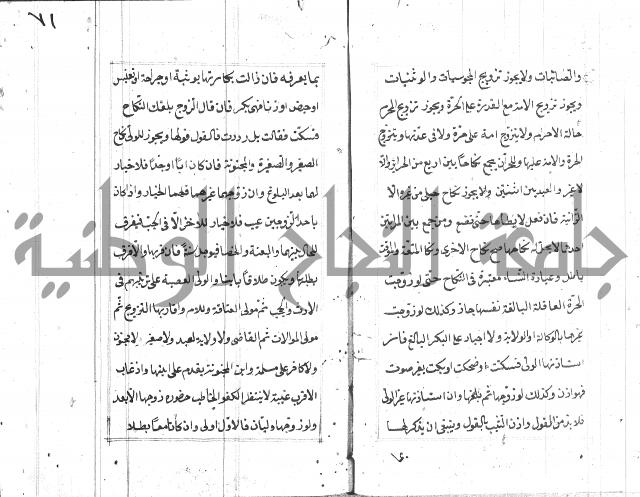 والصابئات ولا يجوز تزويج المجوسيات والوثنيات
ويجوز تزويج الامة مع القدرة على الحرة ويجوز تزويج المحرم
حالة الاحرام ولا يتزوج امة على حرة ولا في عدتها ويتزوج
الحرة والامة عليها وللحر ان يجمع نكاحا بين اربع من الحرائر والاماء
لا غير وللعبد بين اثنتين ولا يجوز نكاح حبلى من غير الا
الزانية فان فعل لا يطأها حتى تضع ومن جمع بين امراتين
احداهما لا يحل له نكاحها صح نكاح الاخرى ونكاح المتعة والموقت
باطل وعبارة النساء معتبرة في النكاح حتى لو زوجت
الحرة العاقلة البالغة نفسها جاز وكذلك لو زوجت
غيرها بالوكالة او الولاية ولا اجبار على البكر البالغ فان
استاذنها الولي فسكتت او ضحكت او بكت بغير صوت
فهو اذن وكذلك لو زوجها ثم بلغها وان استاذنها غير الولي
فلا بد من القول واذن الثيب بالقول وينبغي ان يذكر لها
١٤٠
٧١
بما يعرفه فان زالت بكارتها بوثبة او جراحة او تعنيس
او حيض او زنا فهي بكر فان قال الزوج بلغك النكاح
فسكت فقالت بل رددت فالقول قولها ويجوز للولي نكاح
الصغير والصغيرة والمجنونة فان كان ابا او جدا فلا خيار
لهما بعد البلوغ وان زوجهما غيرهما فلهما الخيار واذا كان
باحد الزوجين عيب فلا خيار للآخر الا في الجب فيفرق
للحال بينهما والعنة والخصا فيؤجل سنة فان قربها والا فرق
بطلبها ويكون طلاقا بائنا والولي العصبة على ترتيبهم في
الارث والحجب ثم مولى العتاقة وللام واقاربها التزويج ثم
مولى الموالات ثم القاضي ولا ولاية لعبد ولا صغير ولا مجنون
ولا كافر على مسلمة وابن المجنونة يقدم على ابيها واذا غاب
الاقرب غيبة لا ينتظر الكفو الخاطب حضوره زوجها الابعد
ولو زوجها وليان فالاول اولى وان كانا معا بطلا
جامعة النجاح الوطنية